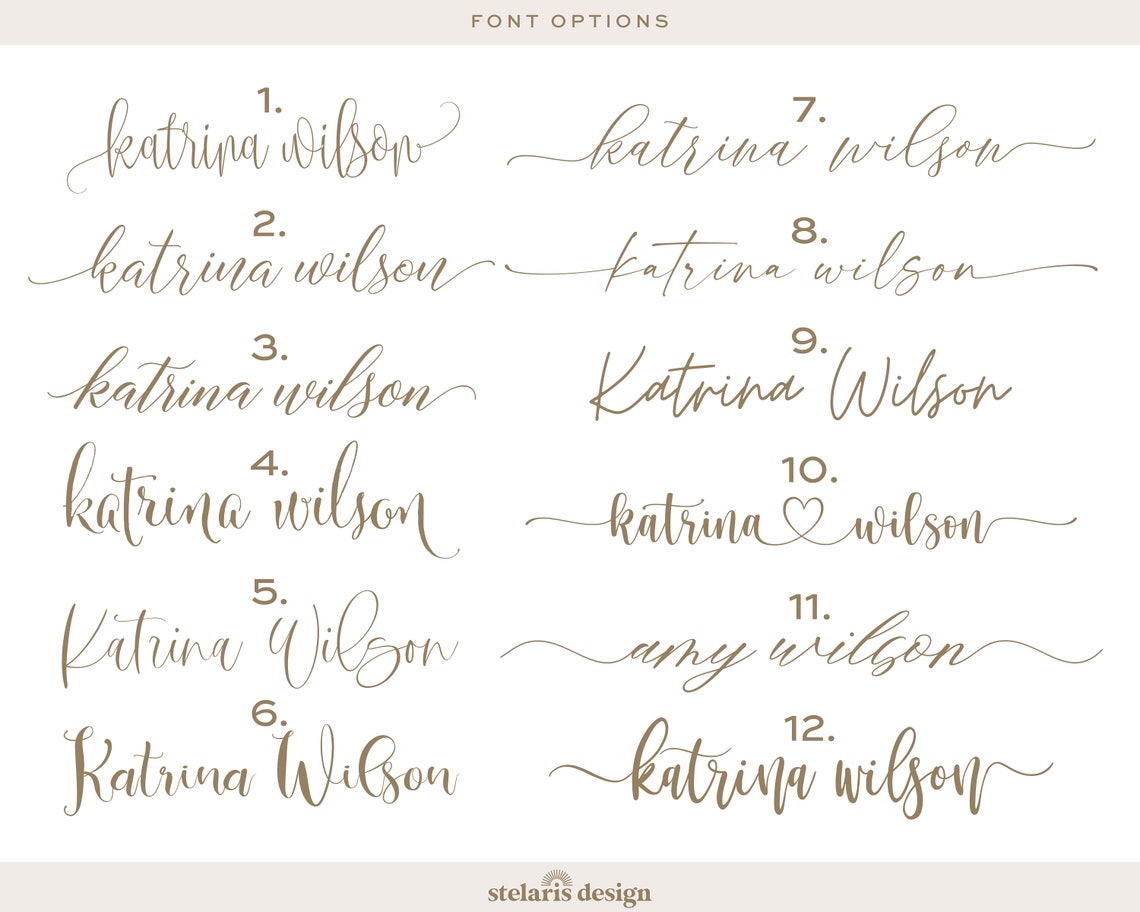 FONT OPTIONS
1.
katrina wilson
2.
katrina wilson
3.
katrina wilson
4.
katrina wilson
5.
Katrina Wilson
6.
Katrina Wilson
7.
katrina wilson
8.
katrina wilson
9.
Katrina Wilson
10.
katrina wilson
11.
amy wilson
12.
katrina wilson
stelaris design